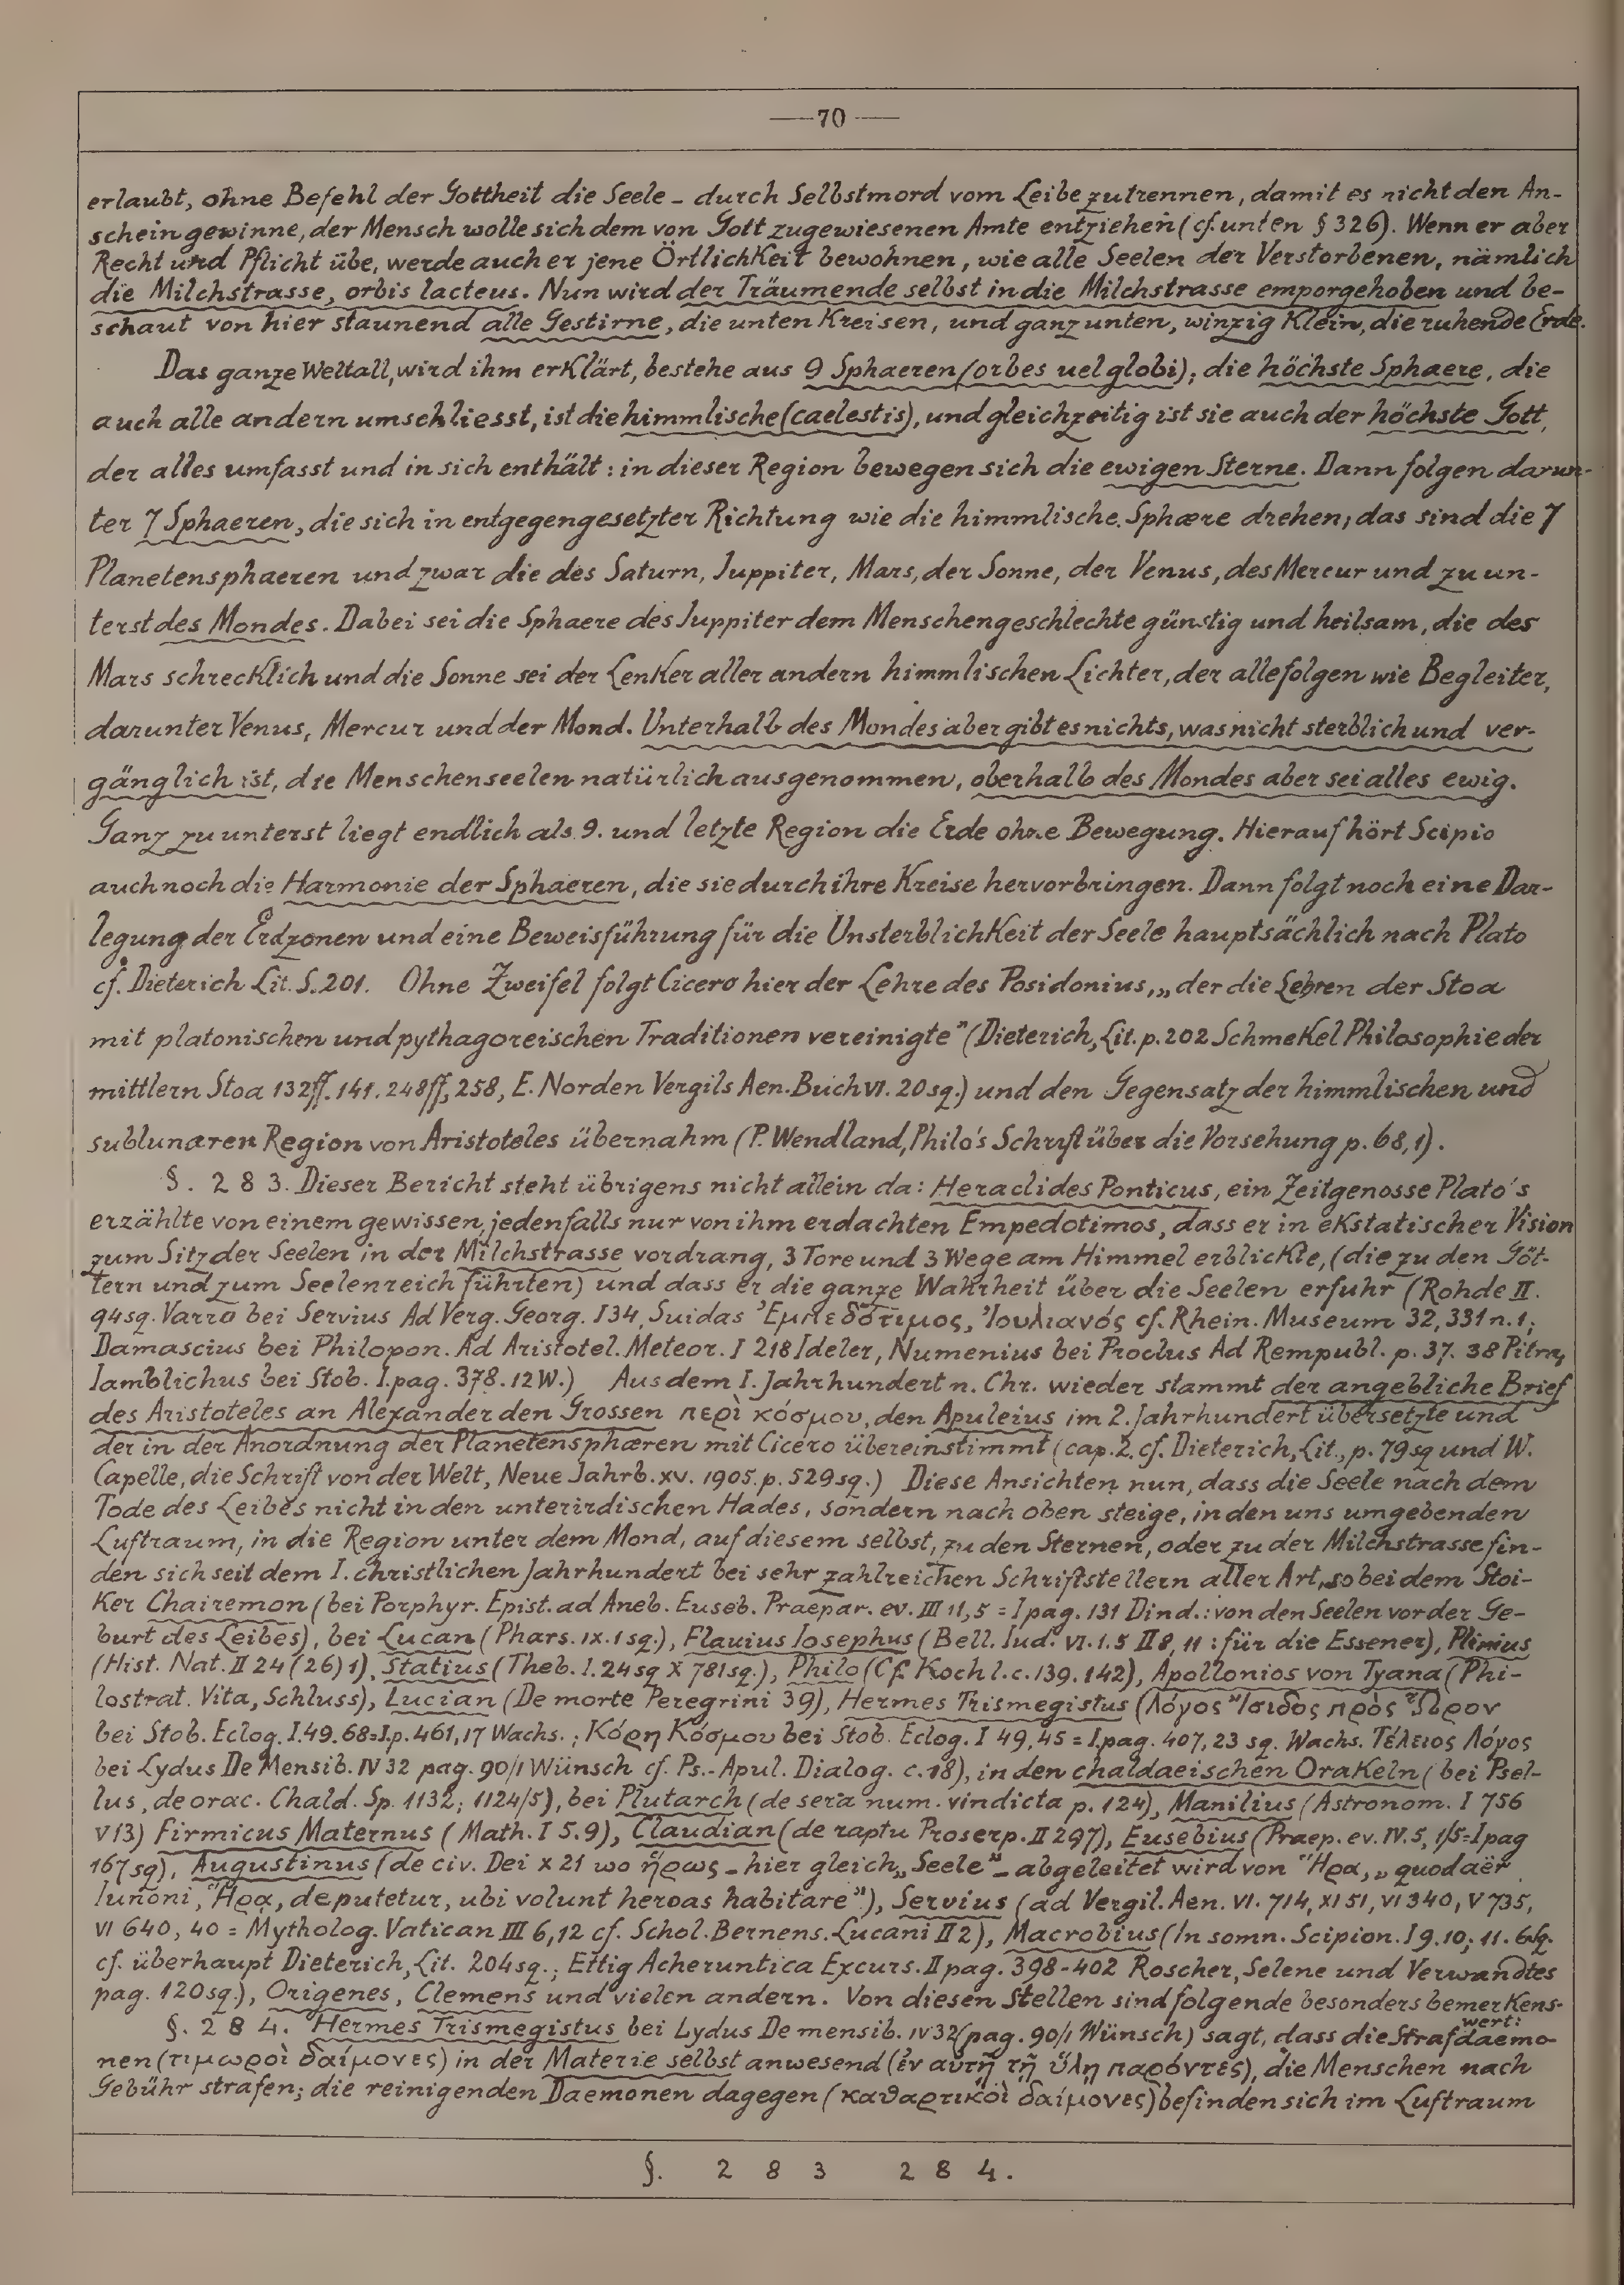 —70—
erlaubt, ohne Befehl der Gottheit die Seele - durch Selbstmord vom Leibe zu trennen, damit es nicht den An-
schein gewinne, der Mensch wolle sich dem von Gott zugewiesenen Amte entziehen (cf. unten § 326). Wenn er aber
Recht und Pflicht übe, werde auch er jene Örtlichkeit bewohnen, wie alle Seelen der Verstorbenen, nämlich
die Milchstrasse, orbis lacteus. Nun wird der Träumende selbst in die Milchstrasse emporgehoben und be-
schaut von hier staunend alle Gestirne, die unten Kreisen, und ganz unten, winzig Klein, die ruhende Erde.
Das ganze Weltall, wird ihm erklärt, bestehe aus 9 Sphaeren (orbes uel globi); die höchste Sphaere, die
auch alle andern umschliesst, ist die himmlische (caelestis), und gleichzeitig ist sie auch der höchste Gott,
der alles umfasst und in sich enthält: in dieser Region bewegen sich die ewigen Sterne. Dann folgen darun-
ter 7 Sphaeren, die sich in entgegengesetzter Richtung wie die himmlische Sphaere drehen; das sind die 7
Planetensphaeren und zwar die des Saturn, Iuppiter, Mars, der Sonne, der Venus, des Mercur und zu un-
terst des Mondes. Dabei sei die Sphaere des Iuppiter dem Menschengeschlechte günstig und heilsam, die des
Mars schrecklich und die Sonne sei der Lenker aller andern himmlischen Lichter, der alle folgen wie Begleiter,
darunter Venus, Mercur und der Mond. Unterhalb des Mondes aber gibt es nichts, was nicht sterblich und ver-
gänglich ist, die Menschenseelen natürlich ausgenommen, oberhalb des Mondes aber sei alles ewig.
Ganz zu unterst liegt endlich als 9. und letzte Region die Erde ohne Bewegung. Hierauf hört Scipio
auch noch die Harmonie der Sphaeren, die sie durch ihre Kreise hervorbringen. Dann folgt noch eine Dar-
legung der Erdzonen und eine Beweisführung für die Unsterblichkeit der Seele hauptsächlich nach Plato
cf. Dieterich Lit. S. 201. Ohne Zweifel folgt Cicero hier der Lehre des Posidonius, „der die Lehren der Stoa
mit platonischen und pythagoreischen Traditionen vereinigte" (Dieterich, Lit. p. 202 Schmekel Philosophie der
mittlern Stoa 132ff. 141. 248ff, 258, E. Norden Vergils Aen. Buch VI. 20 sq.) und den Gegensatz der himmlischen und
sublunaren Region von Aristoteles übernahm (P. Wendland, Philo's Schrift über die Vorsehung p. 68,1).
§. 283. Dieser Bericht steht übrigens nicht allein da: Heraclides Ponticus, ein Zeitgenosse Plato's
erzählte von einem gewissen, jedenfalls nur von ihm erdachten Empedotimos, dass er in ekstatischer Vision
zum Sitz der Seelen in der Milchstrasse vordrang, 3 Tore und 3 Wege am Himmel erblickte, (die zu den Göt-
tern und zum Seelenreich führten) und dass er die ganze Wahrheit über die Seelen erfuhr (Rohde II.
94 sq. Varro bei Servius Ad Verg. Georg. I 34, Suidas Ἐμπεδότιμος, Ἰουλιανός cf. Rhein. Museum 32, 331 n. 1;
Damascius bei Philopon. Ad Aristotel. Meteor. I 218 Ideler, Numenius bei Proclus Ad Rempubl. p. 37. 38 Pitra,
Iamblichus bei Stob. I. pag. 378. 12 W.) Aus dem I. Jahrhundert n. Chr. wieder stammt der angebliche Brief
des Aristoteles an Alexander den Grossen περὶ κόσμου, den Apuleius im 2. Jahrhundert übersetzte und
der in der Anordnung der Planetensphaeren mit Cicero übereinstimmt (cap. 2. cf. Dieterich, Lit., p. 79 sq und W.
Capelle, die Schrift von der Welt, Neue Jahrb. XV. 1905. p. 529 sq.) Diese Ansichten nun, dass die Seele nach dem
Tode des Leibes nicht in den unterirdischen Hades, sondern nach oben steige, in den uns umgebenden
Luftraum, in die Region unter dem Mond, auf diesem selbst, zu den Sternen, oder zu der Milchstrasse fin-
den sich seit dem I. christlichen Jahrhundert bei sehr zahlreichen Schriftstellern aller Art, so bei dem Stoi-
ker Chairemon (bei Porphyr. Epist. ad Aneb. Euseb. Praepar. ev. III 11,5 = I pag. 131 Dind.: von den Seelen vor der Ge-
burt des Leibes), bei Lucan (Phars. IX. 1 sq.), Flauius Iosephus (Bell. Iud. VI. 1. 5 II 8, 11: für die Essener), Plinius
(Hist. Nat. II 24 (26) 1), Statius (Theb. I. 24 sq X 781 sq.), Philo (Cf. Koch l. c. 139. 142), Apollonios von Tyana (Phi-
lostrat. Vita, Schluss), Lucian (De morte Peregrini 39), Hermes Trismegistus (Λόγος Ἴσιδος πρὸς Ὧρον
bei Stob. Eclog. I. 49. 68 = I. p. 461, 17 Wachs.; Κόρη Κόσμου bei Stob. Eclog. I 49, 45 = I. pag. 407, 23 sq. Wachs. Τέλειος Λόγος
bei Lydus De Mensib. IV 32 pag. 90/1 Wünsch cf. Ps.-Apul. Dialog. c. 18), in den chaldaeischen Orakeln (bei Psel-
lus, de orac. Chald. Sp. 1132; 1124/5), bei Plutarch (de sera num. vindicta p. 124), Manilius (Astronom. I 756
V 13) Firmicus Maternus (Math. I 5. 9), Claudian (de raptu Proserp. II 297), Eusebius (Praep. ev. IV. 5, 1/5 = I pag
167 sq), Augustinus (de civ. Dei X 21 wo ἥρως - hier gleich „Seele" - abgeleitet wird von Ἥρα, „quod aër
Iunoni, Ἥρα, deputetur, ubi volunt heroas habitare"), Servius (ad Vergil. Aen. VI. 714, XI 51, VI 340, V 735,
VI 640, 40 = Mytholog. Vatican III 6, 12 cf. Schol. Bernens. Lucani II 2), Macrobius (In somn. Scipion. I 9. 10; 11. 6 sq.
cf. überhaupt Dieterich, Lit. 204 sq.; Ettig Acheruntica Excurs. II pag. 398-402 Roscher, Selene und Verwandtes
pag. 120 sq.), Origenes, Clemens und vielen andern. Von diesen Stellen sind folgende besonders bemerkens-
wert:
§. 284. Hermes Trismegistus bei Lydus De mensib. IV 32 (pag. 90/1 Wünsch) sagt, dass die Strafdaemo-
nen (τιμωροὶ δαίμονες) in der Materie selbst anwesend (ἐν αὐτῇ τῇ ὕλῃ παρόντες), die Menschen nach
Gebühr strafen; die reinigenden Daemonen dagegen (καθαρτικοὶ δαίμονες) befinden sich im Luftraum
§. 283 284.